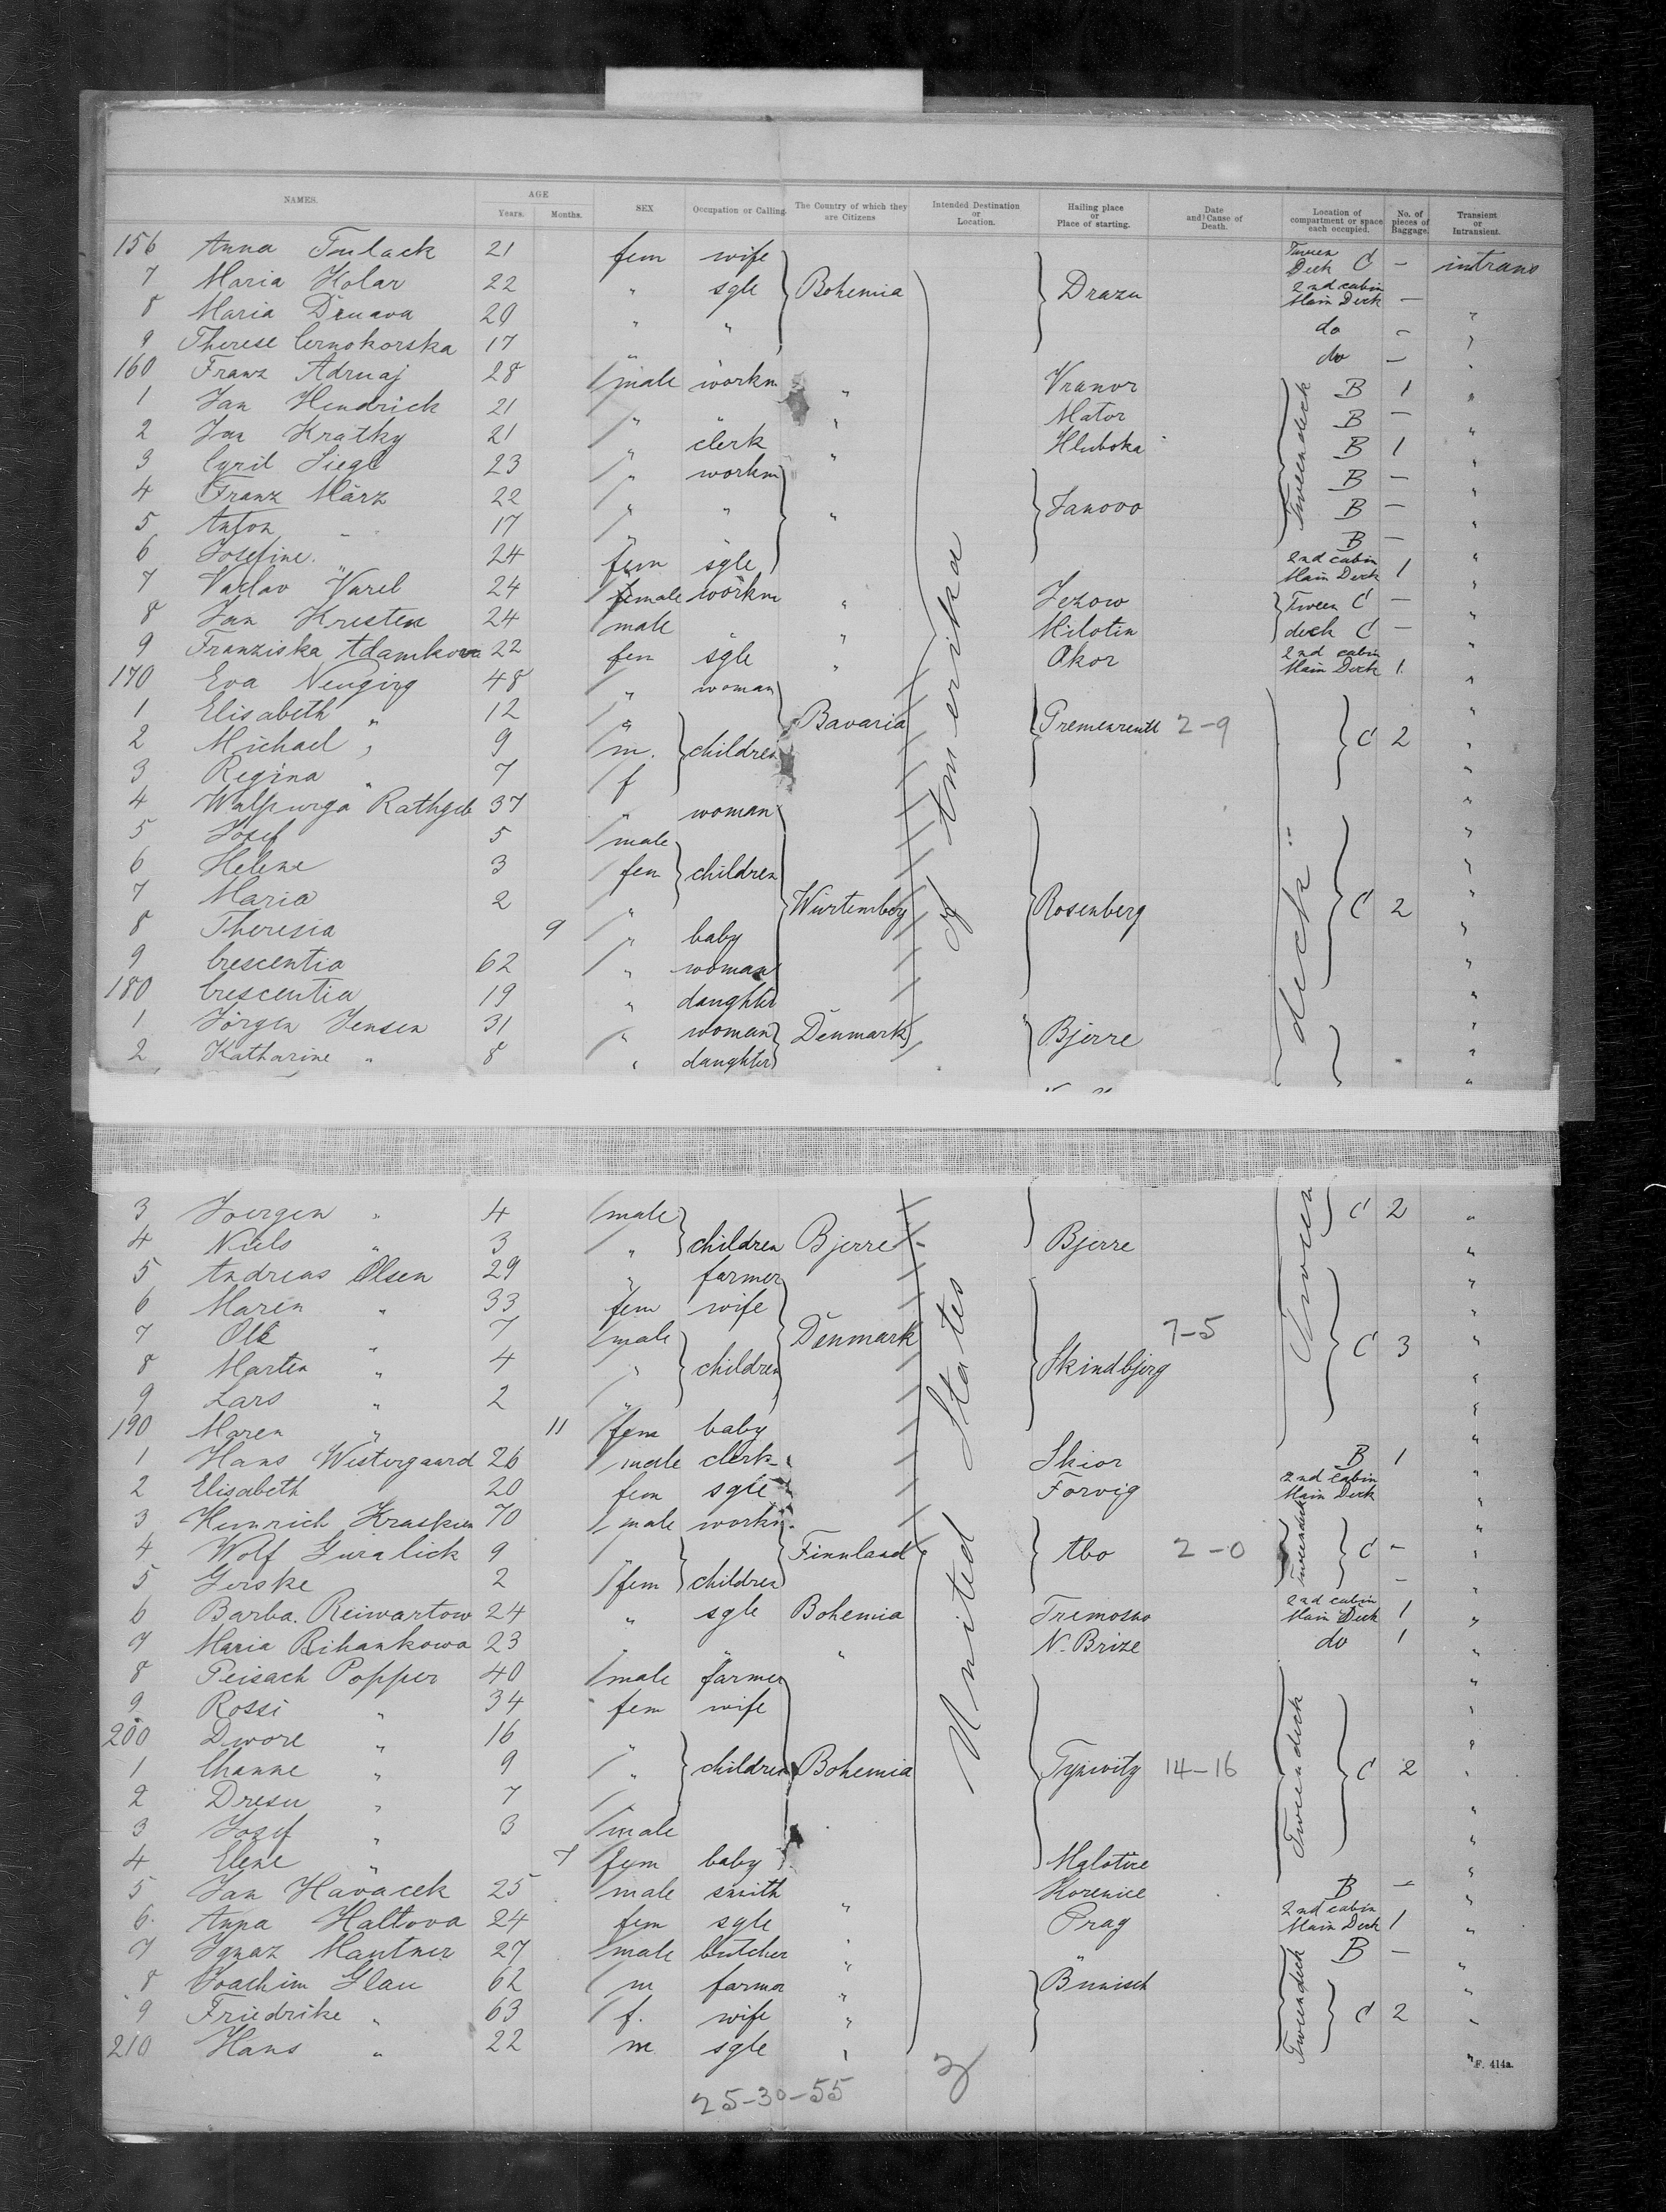 NAMES. AGE Years. Months. SEX Occupation or Calling. The Country of which they are Citizens Intended Destination or Location. Hailing place or Place of starting. Date and Cause of Death. Location of compartment or space each occupied. No. of pieces of Baggage. Transient or Intransient.
156 Anna 21 fem wife Tween Deck C – intrans
7 Maria Kolar 22 " sgle Bohemia Drazu 2nd cabin Main Deck – "
8 Maria 20 " " do – "
9 Therese Cernokorska 17 " do – "
160 Franz Adruaj 28 male workm " Vranor B 1 "
1 Jan Hendrick 21 " " " Mator B – "
2 Jan Kratky 21 " clerk " Hluboka B 1 "
3 Cyril Siegl 23 " workm B – "
4 Franz März 22 " " " Janovo B – "
5 Anton " 17 " B – "
6 Josefine " 24 fem sgle 2nd cabin Main Deck 1 "
7 Vaclav Varel 24 female workm " Jezow Tween C – "
8 Jan Kresten 24 male " " Milotin deck C – "
9 Franziska Adamkova 22 fem sgle " Okor 2nd cabin Main Deck 1 "
170 Eva Neuging 48 " woman "
1 Elisabeth " 12 " Bavaria Gremenreuth 2-9 "
2 Michael " 9 m. children C 2 "
3 Regina " 7 f "
4 Walpurga Rathgeb 37 " woman "
5 Josef 5 male "
6 Helene 3 fem children "
7 Maria 2 " Würtemberg Rosenberg C 2 "
8 Theresia 9 " baby "
9 Crescentia 62 " woman "
180 Crescentia 19 " daughter "
1 Jörgen Jensen 31 " woman Denmark Bjerre "
2 Katharine " 8 " daughter "
3 Joergen " 4 male C 2 "
4 Niels " 3 " children Bjerre Bjerre "
5 Andreas Olsen 29 " farmer "
6 Maren " 33 fem wife "
7 Ole " 7 male Denmark 7-5 C 3 "
8 Marten " 4 " children Skindbjerg "
9 Lars " 2 " "
190 Maren " 11 fem baby "
1 Hans Westergaard 26 male clerk " Skior B 1 "
2 Elisabeth 20 fem sgle " Forvig 2nd cabin Main Deck "
3 Heinrich Kraskien 70 male workm "
4 Wolf Guralick 9 Finnland Abo 2-0 Tweendeck C – "
5 Gerske 2 fem children – "
6 Barba. Reiwartow 24 " sgle Bohemia Tremosno 2nd cabin Main Deck 1 "
7 Maria Rihankowa 23 " " " N. Brize do 1 "
8 Peisach Popper 40 male farmer "
9 Rossi " 34 fem wife "
200 Dwore " 16 " "
1 Channe " 9 " children Bohemia 14-16 Tweendeck C 2 "
2 Dresu " 7 "
3 Josef " 3 male "
4 Elene " 7 fem baby "
5 Jan Havacek 25 male smith " Korenice B – "
6 Anna Haltova 24 fem sgle " Prag 2nd cabin Main Deck 1 "
7 Ignaz Mautner 27 male butcher " " B – "
8 Joachim Glau 62 m farmer " Bunisch Tweendeck "
9 Friedrike " 63 f. wife " C 2 "
210 Hans " 22 m sgle " "
United States of Amerika
Tweendeck
Tween deck
25-30-55
F. 414a.